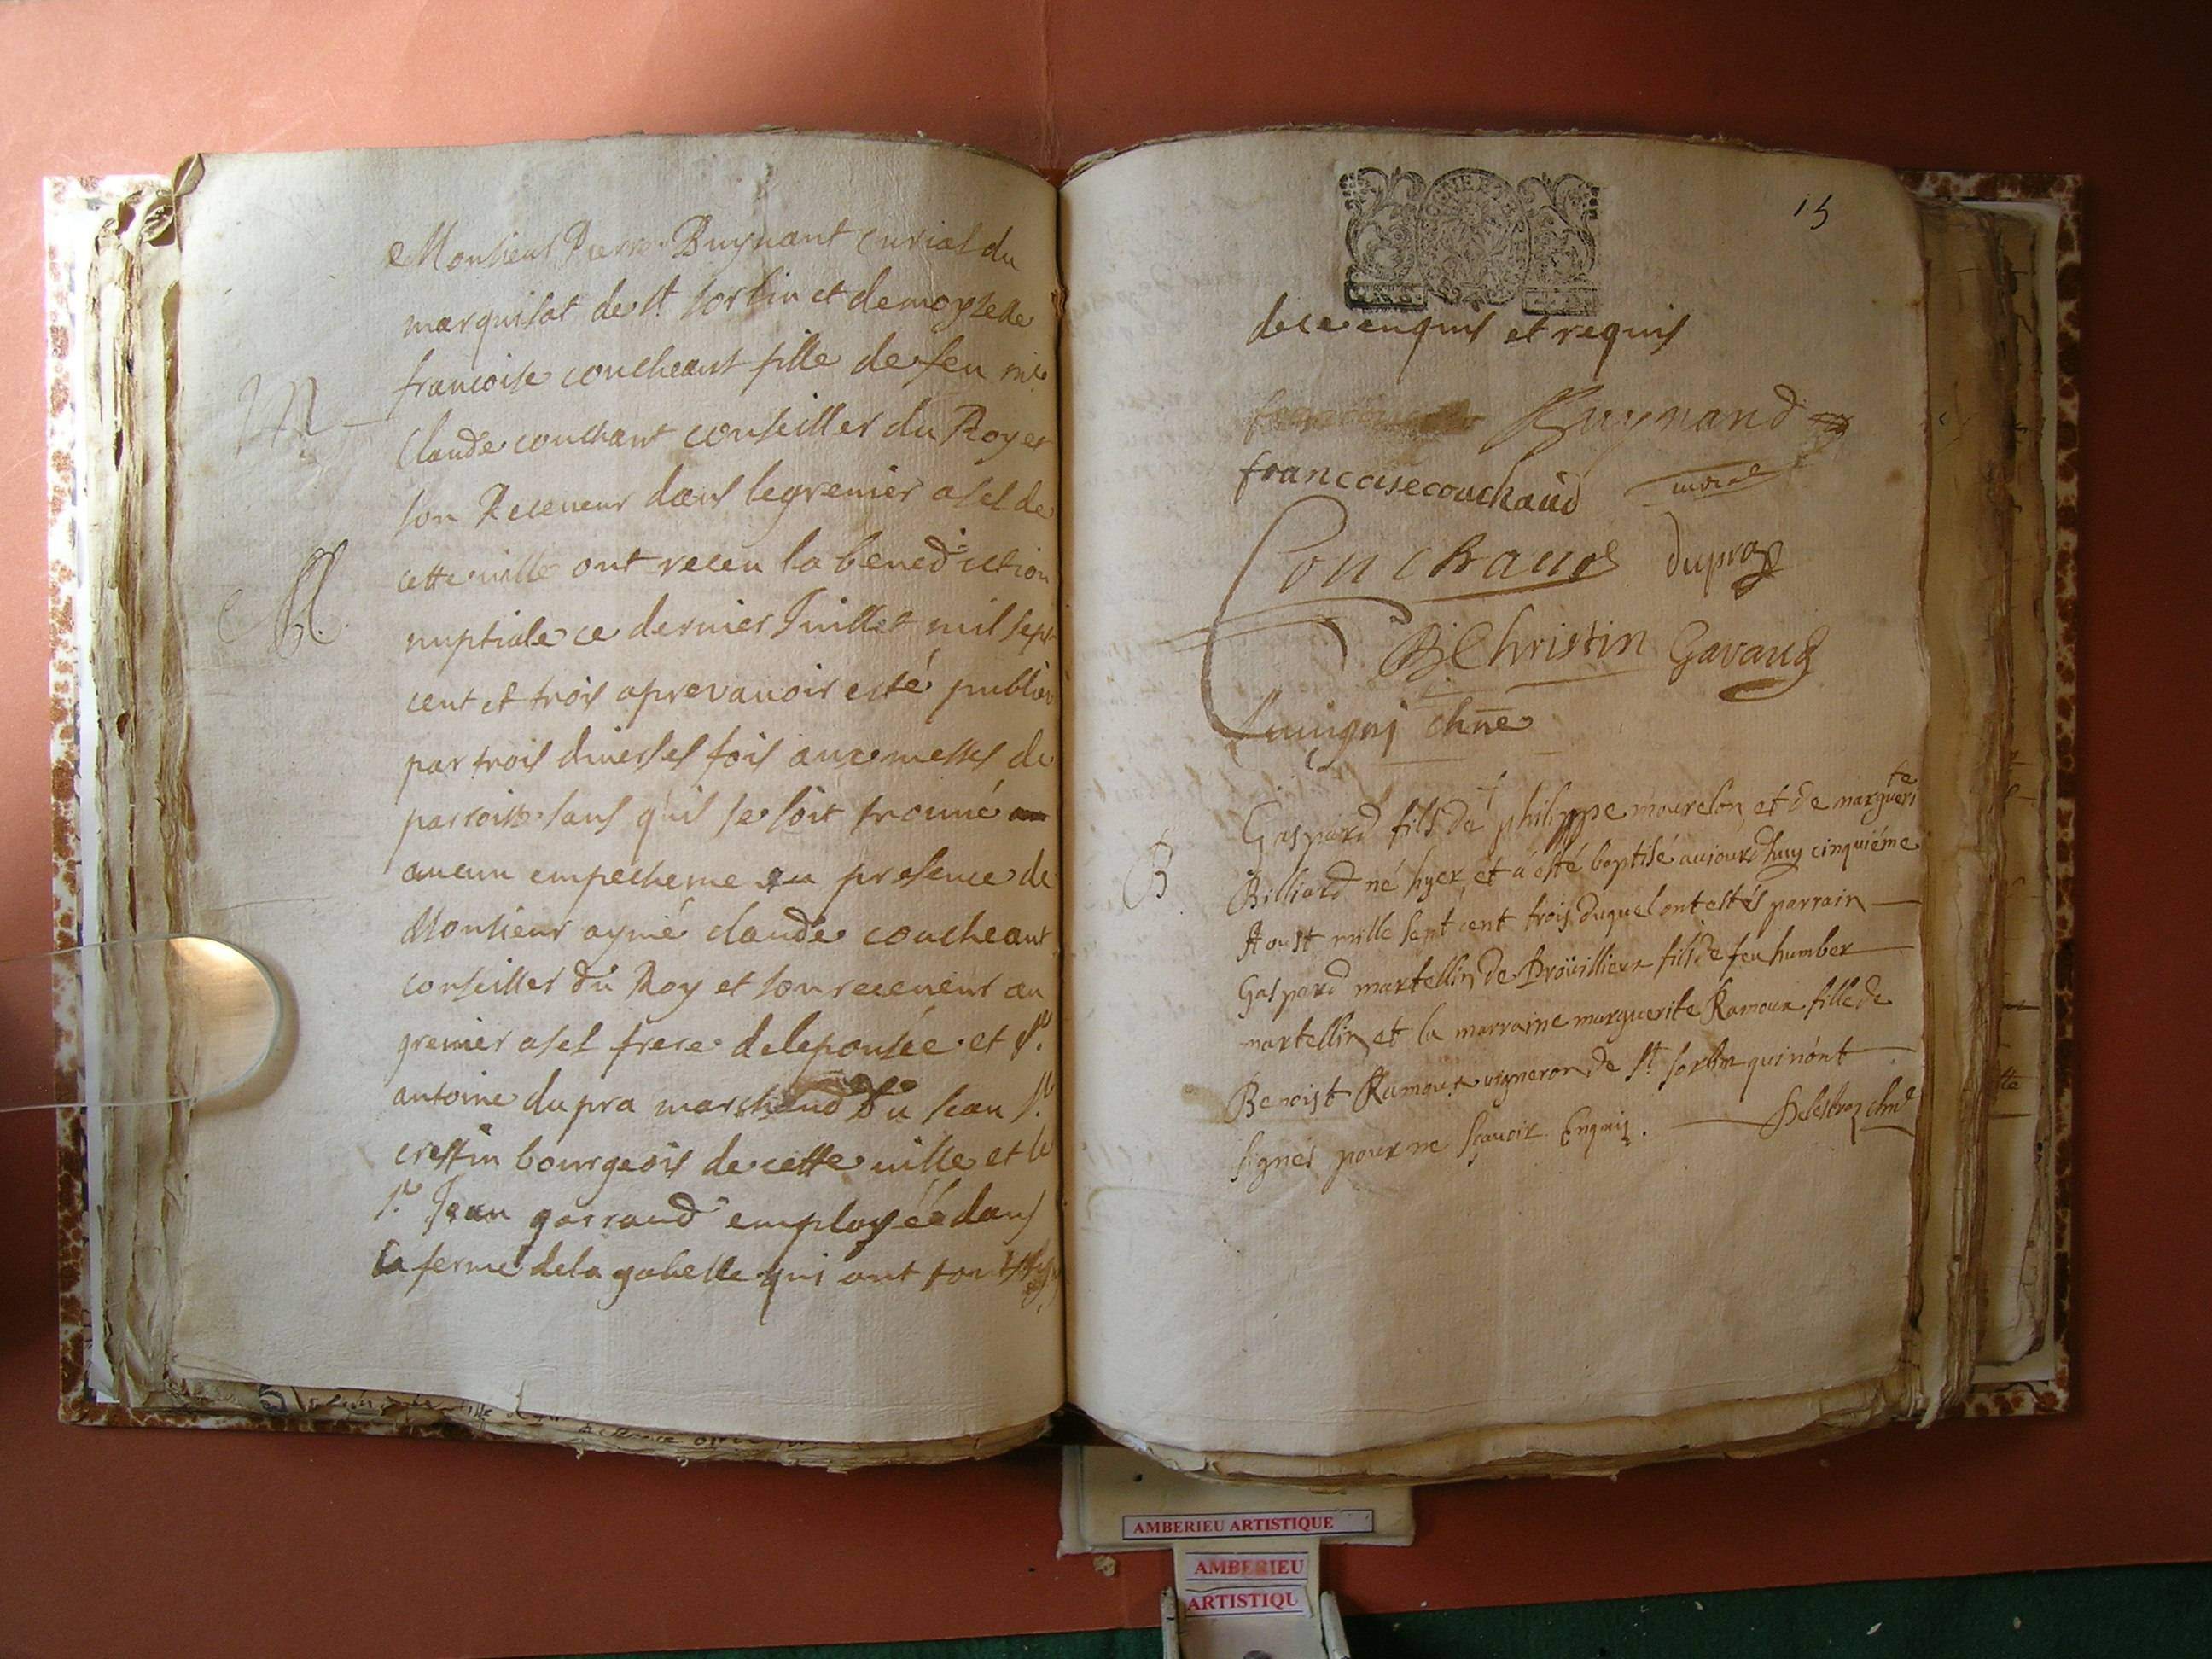 Monsieur Pierre Buynant curial du
marquisat de st. sorlin et demoyselle
francoise coucheant fille de feu mre
M
Claude couchant conseiller du Roy et
son Receueur dans le grenier a sel de
cette uille ont receu la benediction
M
nuptiale ce dernier Juillet mil sept
cent et trois apres auoir esté publiés
par trois diuerses fois aux messes de
parroisse sans qu'il se soit trouué
aucun empecheme en presence de
Monsieur aymé claude coucheant
conseiller du Roy et son receueur au
grenier a sel frere de lepousée et sr.
antoine dupra marchand du sean sr.
crestin bourgeois de cette uille et le
sr. Jean garraud employéé dans
la ferme de la gabelle qui ont touts
15
de ce enquis et requis
Buynand
francoise couchaud
Couchaud dupraz
B Christin Gavaud
chne
Gaspard fils de philippe mourelon et de marguerite
B
Billiard né hyer, et a ésté baptisé aujourdhuy cinquiéme
Aoust mille sept cent trois, duquel ont estés parrain
Gaspard martellin de Proüillieu fils de feu humber
martellin et la marraine marguerite Ramoux fille de
Benoist Ramoux uigneron de st sorlin qui nónt
signés pour ne sçauoir Enquis. Delestraz chne
AMBERIEU ARTISTIQUE
AMBERIEU
ARTISTIQU